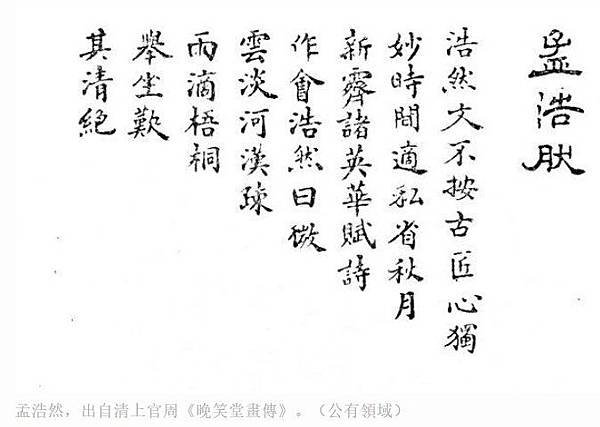 孟浩肰
浩然文不按古匠心獨
妙時間適私省秋月
新霽諸英華賦詩
作會浩然曰微
雲淡河漢疎
雨滴梧桐
舉坐歎
其清絕
孟浩然，出自清上官周《晚笑堂畫傳》。（公有領域）